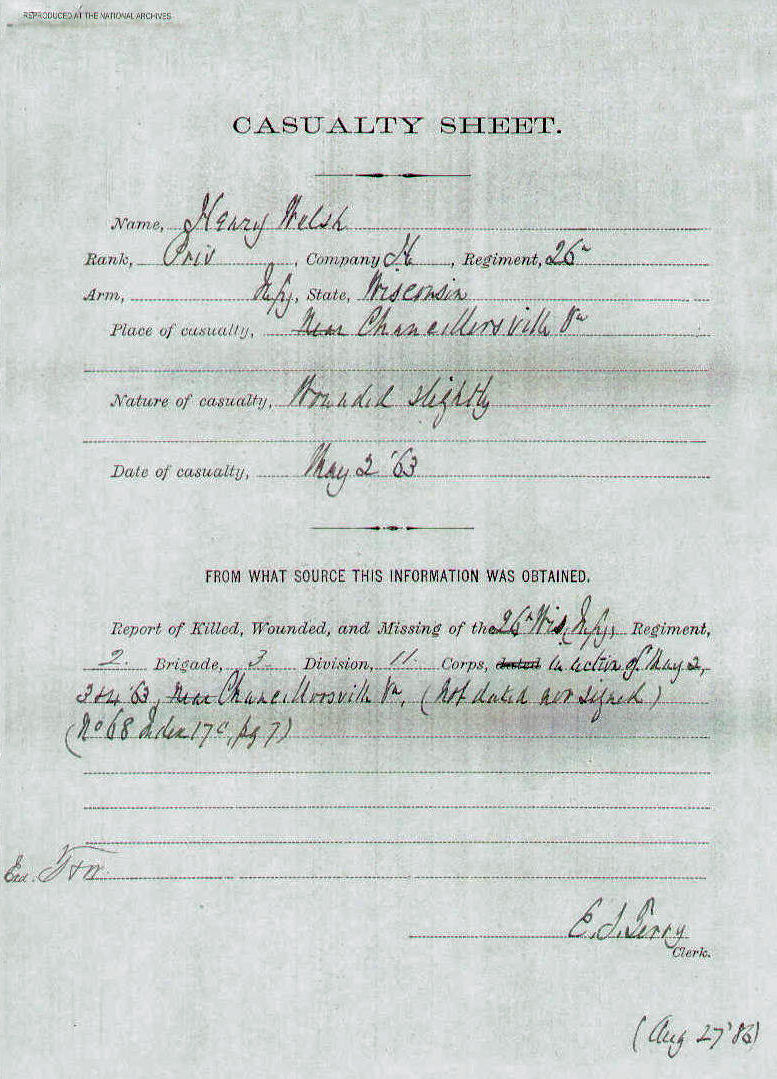 REPRODUCED AT THE NATIONAL ARCHIVES
CASUALTY SHEET.
Name, Henry Welsh
Rank, Priv, Company K, Regiment, 26"
Arm, Infy, State, Wisconsin
Place of casualty, Near Chancillersville Va
Nature of casualty, Wounded slightly
Date of casualty, May 2 '63
FROM WHAT SOURCE THIS INFORMATION WAS OBTAINED.
Report of Killed, Wounded, and Missing of the 26" Wis. Infy, Regiment,
2. Brigade, 3 Division, 11. Corps, dated in action of May 2,
3 & 4 '63, Near Chancillorsville Va, (Not dated nor signed)
(No 68 Index 17 C, pg 7)
E. S. Perry
Clerk.
(Aug 27 '86)